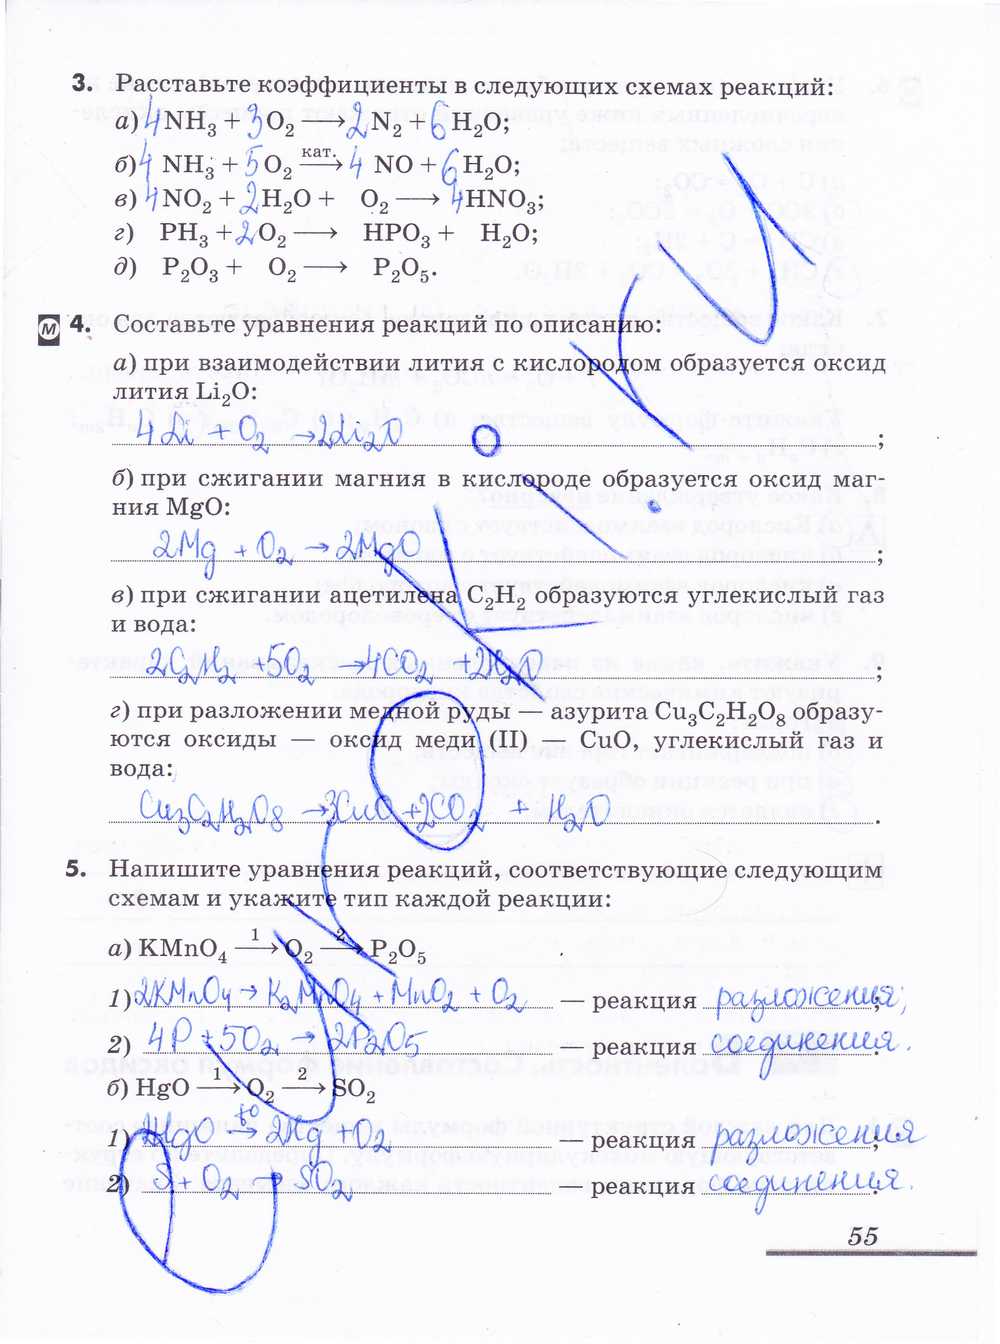 3. Расставьте коэффициенты в следующих схемах реакций:
а) 4 NH₃ + 3 O₂ ⟶ 2 N₂ + 6 H₂O;
б) 4 NH₃ + 5 O₂ кат.⟶ 4 NO + 6 H₂O;
в) 4 NO₂ + 2 H₂O + O₂ ⟶ 4 HNO₃;
г) PH₃ + 2 O₂ ⟶ HPO₃ + H₂O;
д) P₂O₃ + O₂ ⟶ P₂O₅.
М 4. Составьте уравнения реакций по описанию:
а) при взаимодействии лития с кислородом образуется оксид
лития Li₂O:
4Li + O₂ → 2Li₂O ;
б) при сжигании магния в кислороде образуется оксид маг-
ния MgO:
2Mg + O₂ → 2MgO ;
в) при сжигании ацетилена C₂H₂ образуются углекислый газ
и вода:
2C₂H₂ + 5O₂ → 4CO₂ + 2H₂O ;
г) при разложении медной руды — азурита Cu₃C₂H₂O₈ образу-
ются оксиды — оксид меди (II) — CuO, углекислый газ и
вода:
Cu₃C₂H₂O₈ → 3CuO + 2CO₂ + H₂O .
5. Напишите уравнения реакций, соответствующие следующим
схемам и укажите тип каждой реакции:
а) KMnO₄ 1⟶ O₂ 2⟶ P₂O₅
1) 2KMnO₄ → K₂MnO₄ + MnO₂ + O₂ — реакция разложения;
2) 4P + 5O₂ → 2P₂O₅ — реакция соединения.
б) HgO 1⟶ O₂ 2⟶ SO₂
1) 2HgO t°→ 2Hg + O₂ — реакция разложения;
2) S + O₂ → SO₂ — реакция соединения.
55